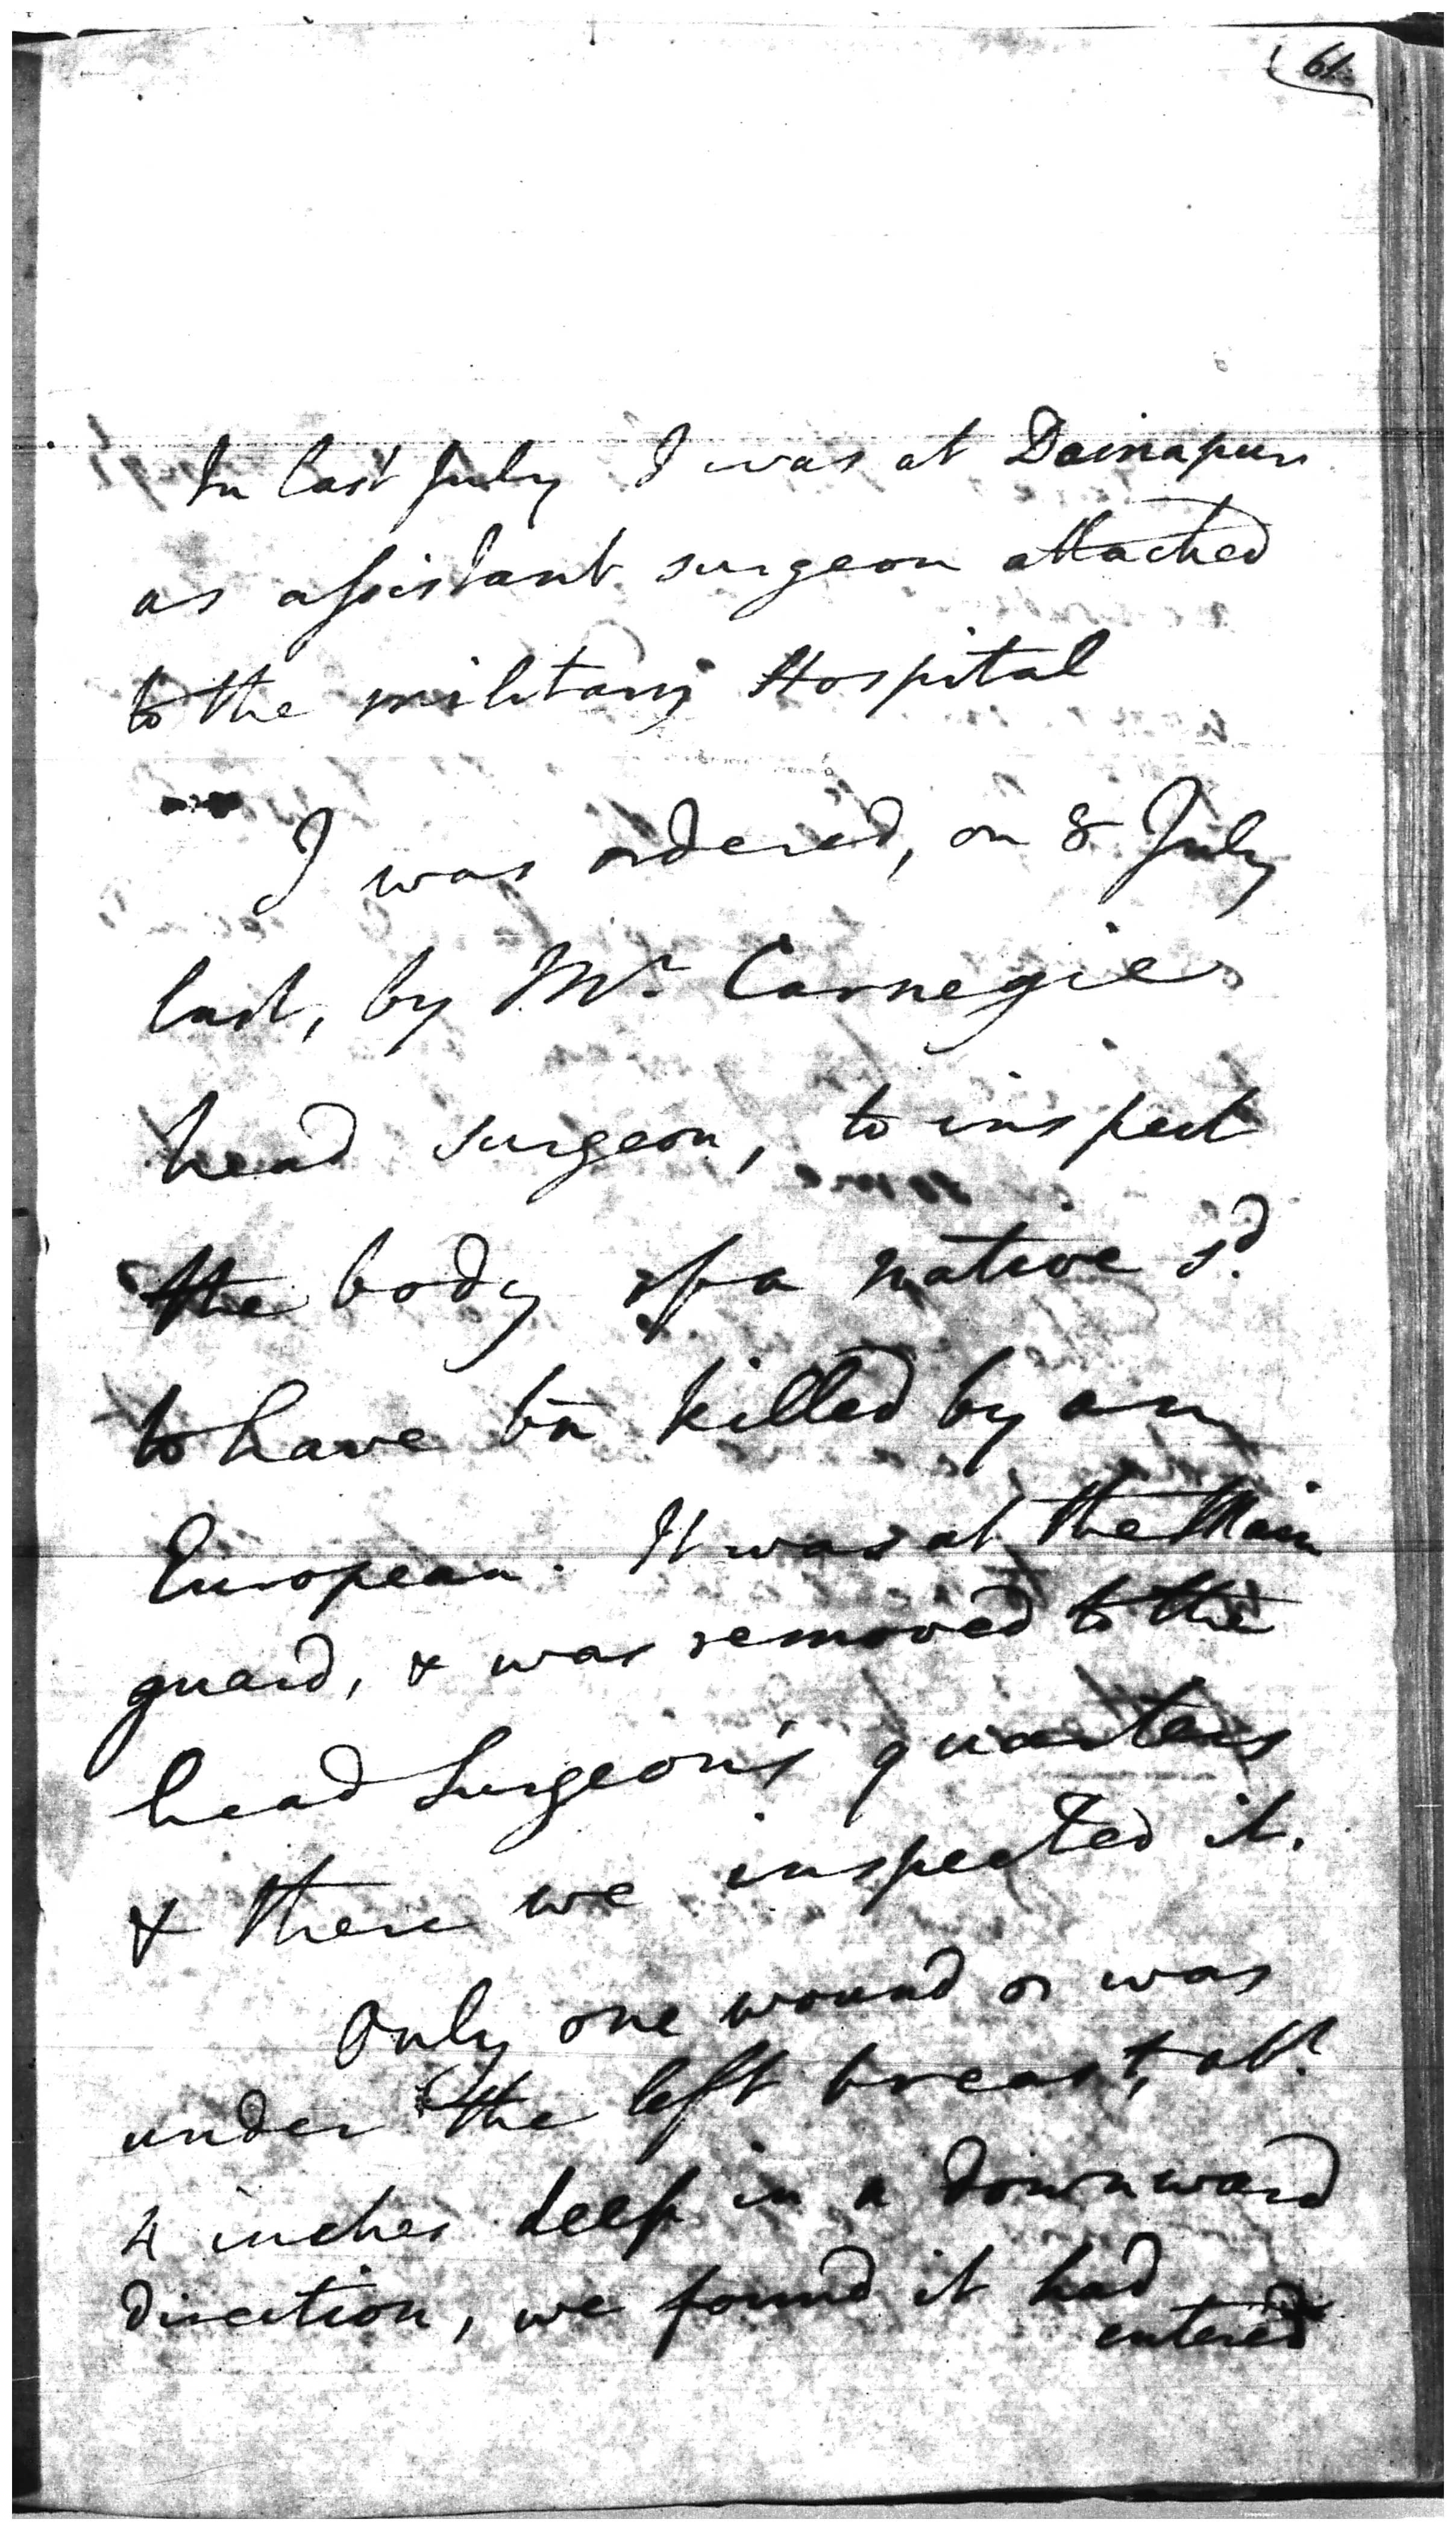 61.
In last July I was at Dainapur
as assistant surgeon attached
to the military Hospital
I was ordered, on 8 July
last, by Mr. Carnegie
head surgeon, to inspect
the body of a native sd.
to have bn killed by an
European. It was at the Main
guard, & was removed to the
head Surgeon's quarters
& there we inspected it.
Only one wound or was
under the left breast, abt.
4 inches deep in a downward
direction, we found it had
entered